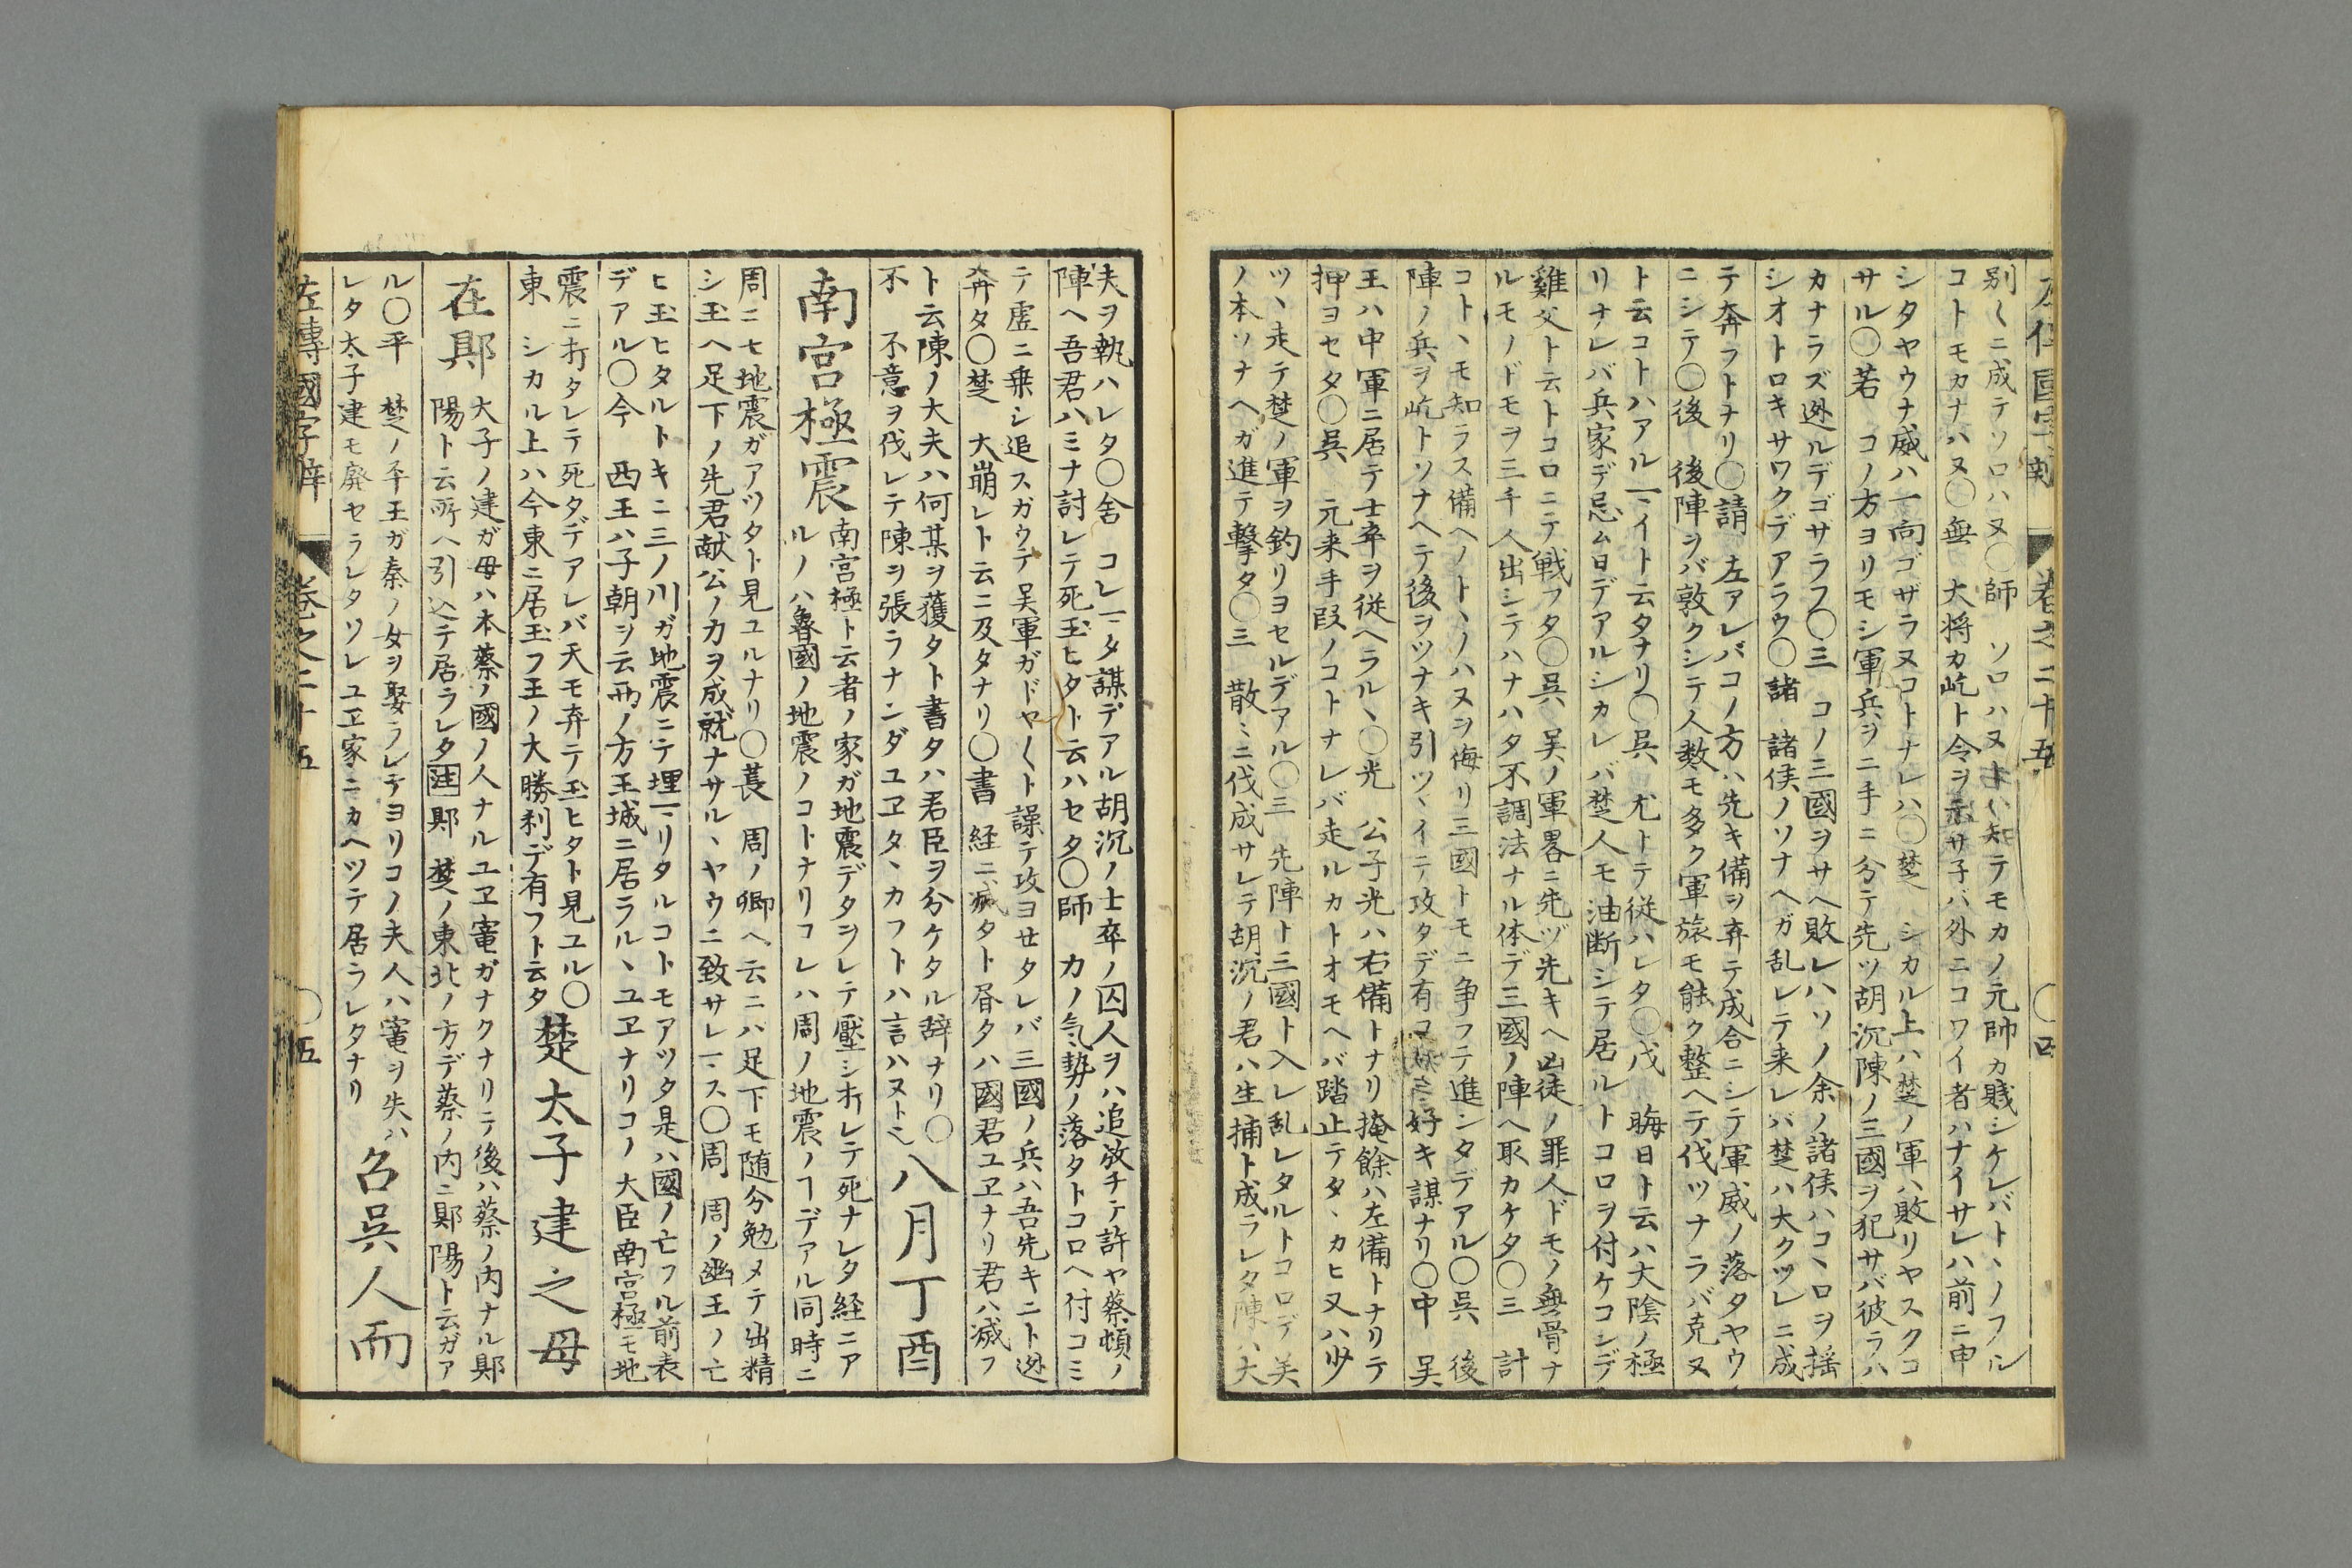 左傳國字辯 卷之二十五 〇四
別〱ニ成テソロハヌ〇師 ソロハヌ知テモカノ元帥カ賤シケレバトヽノフル
コトモカナハヌ〇無 大将カ屹ト令ヲ示サ子バ外ニコワイ者ハナイサレハ前ニ申
シタヤウナ威ハ一向ゴザラヌコトナレハ〇楚 シカル上ハ楚ノ軍ハ敗リヤスクコ
サル〇若 コノ方ヨリモシ軍兵ヲ二手ニ分テ先ツ胡沉陳ノ三國ヲ犯サバ彼ラハ
カナラズ迯ルデゴサラフ〇三 コノ三國ヲサヘ敗レハソノ余ノ諸侯ハコヽロヲ揺
シオトロキサワクデアラウ〇諸 諸侯ノソナヘガ乱レテ来レバ楚ハ大クツレニ成
テ奔ラフトナリ〇請 左アレバコノ方ハ先キ備ヲ弃テ成合ニシテ軍威ノ落タヤウ
ニシテ〇後 後陣ヲバ敦クシテ人数モ多ク軍旅モ能ク整ヘテ伐ツナラバ克ヌ
ト云コトハアルマイト云タナリ〇呉 尤トテ従ハレタ〇戊 晦日ト云ハ大陰ノ極
リナレバ兵家デ忌ム日デアルシカレバ楚人モ油断シテ居ルトコロヲ付ケコンデ
雞父ト云トコロニテ戦フタ〇呉 呉ノ軍畧ニ先ヅ先キヘ凶徒ノ罪人ドモノ無骨ナ
ルモノドモヲ三千人出シテハナハタ不調法ナル体デ三國ノ陣ヘ取カケタ〇三 計
コトヽモ知ラス備ヘノトヽノハヌヲ侮リ三國トモニ争フテ進ンタデアル〇呉 後
陣ノ兵ヲ屹トソナヘテ後ヲツナキ引ツヽイニテ攻タデ有コ好キ謀ナリ〇中 呉
王ハ中軍ニ居テ士卒ヲ従ヘラルヽ〇光 公子光ハ右備トナリ掩餘ハ左備トナリテ
押ヨセタ〇呉 元来手段ノコトナレバ走ルカトオモヘバ踏止テタヽカヒ又ハ少
ツヽ走テ楚ノ軍ヲ釣リヨセルデアル〇三 先陣ト三國ト入レ乱レタルトコロデ美
ノ本ソナヘガ進テ撃タ〇三 散ミニ伐成サレテ胡沉ノ君ハ生捕ト成ラレタ陳ハ大
夫ヲ執ハレタ〇舎 コレマタ謀デアル胡沉ノ士卒ノ囚人ヲハ追放チテ許ヤ蔡頓ノ
陣ヘ吾君ハミナ討レテ死玉ヒタト云ハセタ〇師 カノ気勢ノ落タトコロヘ付コミ
テ虚ニ乗シ追スガウテ呉軍ガドヤ〱ト譟テ攻ヨセタレバ三國ノ兵ハ吾先キニト迯
奔タ〇楚 大崩レト云ニ及タナリ〇書 経ニ滅タト書タハ國君ユヱナリ君ハ滅フ
ト云陳ノ大夫ハ何某ヲ獲タト書タハ君臣ヲ分ケタル辞ナリ〇
不 不意ヲ伐レテ陳ヲ張ラナンダユヱタヽカフトハ言ハヌト也 八月丁酉
南宮極震 南宮極ト云者ノ家ガ地震デタヲレテ壓シ打レテ死ナレタ経ニア
ルノハ魯國ノ地震ノコトナリコレハ周ノ地震ノヿデアル同時ニ
周ニモ地震ガアツタト見ユルナリ〇萇 周ノ卿ヘ云ニハ足下モ随分勉メテ出精
シ玉ヘ足下ノ先君献公ノ力ヲ成就ナサルヽヤウニ致サレマス〇周 周ノ幽王ノ亡
ヒ玉ヒタルトキニ三ノ川ガ地震ニテ埋マリタルコトモアツタ是ハ國ノ亡フル前表
デアル〇今 西王ハ子朝ヲ云西ノ方王城ニ居ラルヽユヱナリコノ大臣南宮極モ地
震ニ打タレテ死タデアレバ天モ弃テ玉ヒタト見ユル〇
東 シカル上ハ今東ニ居玉フ王ノ大勝利デ有フト云タ 楚太子建之母
在郹 大子ノ建ガ母ハ本蔡ノ國ノ人ナルユヱ寵ガナクナリテ後ハ蔡ノ内ナル郹
陽ト云所ヘ引込テ居ラレタ 注 郹 楚ノ東北ノ方デ蔡ノ内ニ郹陽ト云ガア
ル〇平 楚ノ平王ガ秦ノ女ヲ娶ラレテヨリコノ夫人ハ寵ヲ失ハ
レタ太子建モ廃セラレタソレユヱ家ニカヘツテ居ラレタナリ 召呉人而
左傳國字辯 卷之二十五 〇五